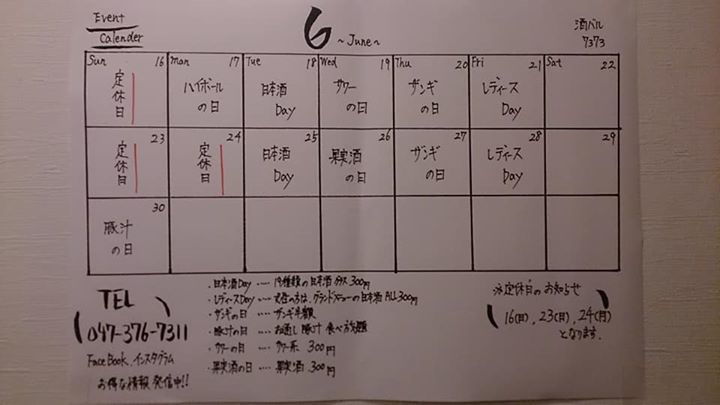 Event
Calender
6
~June~
酒バル
7373
Sun 16 Mon 17 Tue 18 Wed 19 Thu 20 Fri 21 Sat 22
定休日 ハイボールの日 日本酒Day サワーの日 ザンギの日 レディースDay
23 24 25 26 27 28 29
定休日 定休日 日本酒Day 果実酒の日 ザンギの日 レディースDay
30
豚汁の日
TEL
047-376-7311
FaceBook、インスタグラム
お得な情報発信中!!
・日本酒Day ‥‥ 19種類の日本酒グラス300円
・レディースDay ‥‥ 女性の方は、グランドメニューの日本酒ALL300円
・ザンギの日 ‥‥ ザンギ半額
・豚汁の日 ‥‥ お通し豚汁食べ放題
・サワーの日 ‥‥ サワー系 300円
・果実酒の日 ‥‥ 果実酒 300円
※定休日のお知らせ
16(日)、23(日)、24(月)
となります。